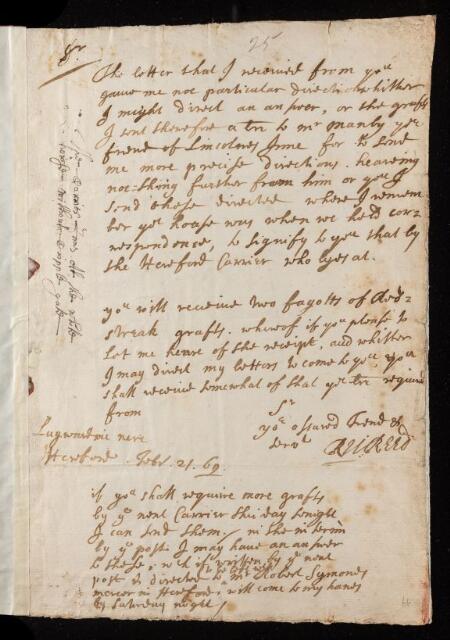 25
Sr.
The letter that I received from you
gave me not particular directions whither
I might direct an answer, or the grafts
I sent therefore a ltre to mr Manby yor
frend of Lincolnes Inne for to send
me more precise directions. heareing
no-thing further from him or you I
send these directed where I remem
ber yor house was when we held cor=
respondence, to signify to you that by
the Hereford Carrier who lyes at
you will receive two fagotts of Red=
streak grafts. whereof if you please to
let me heare of the receipt, and whither
I may direct my letters to come to you, you
shall receive somewhat of that yor ltre required
from
Sr
yor assured frend &
servt
Lugwardine neere
Hereford Febr. 21. 69
if you shall require more grafts
by ye next Carrier this day senight
I can send them / in the interim
by ye post I may have an answer
to these, wch if written by ye next
post & directed to Mr Robert Symonds
mercer in Hereford, will come to my hands
by Saturday night /
The Carrier